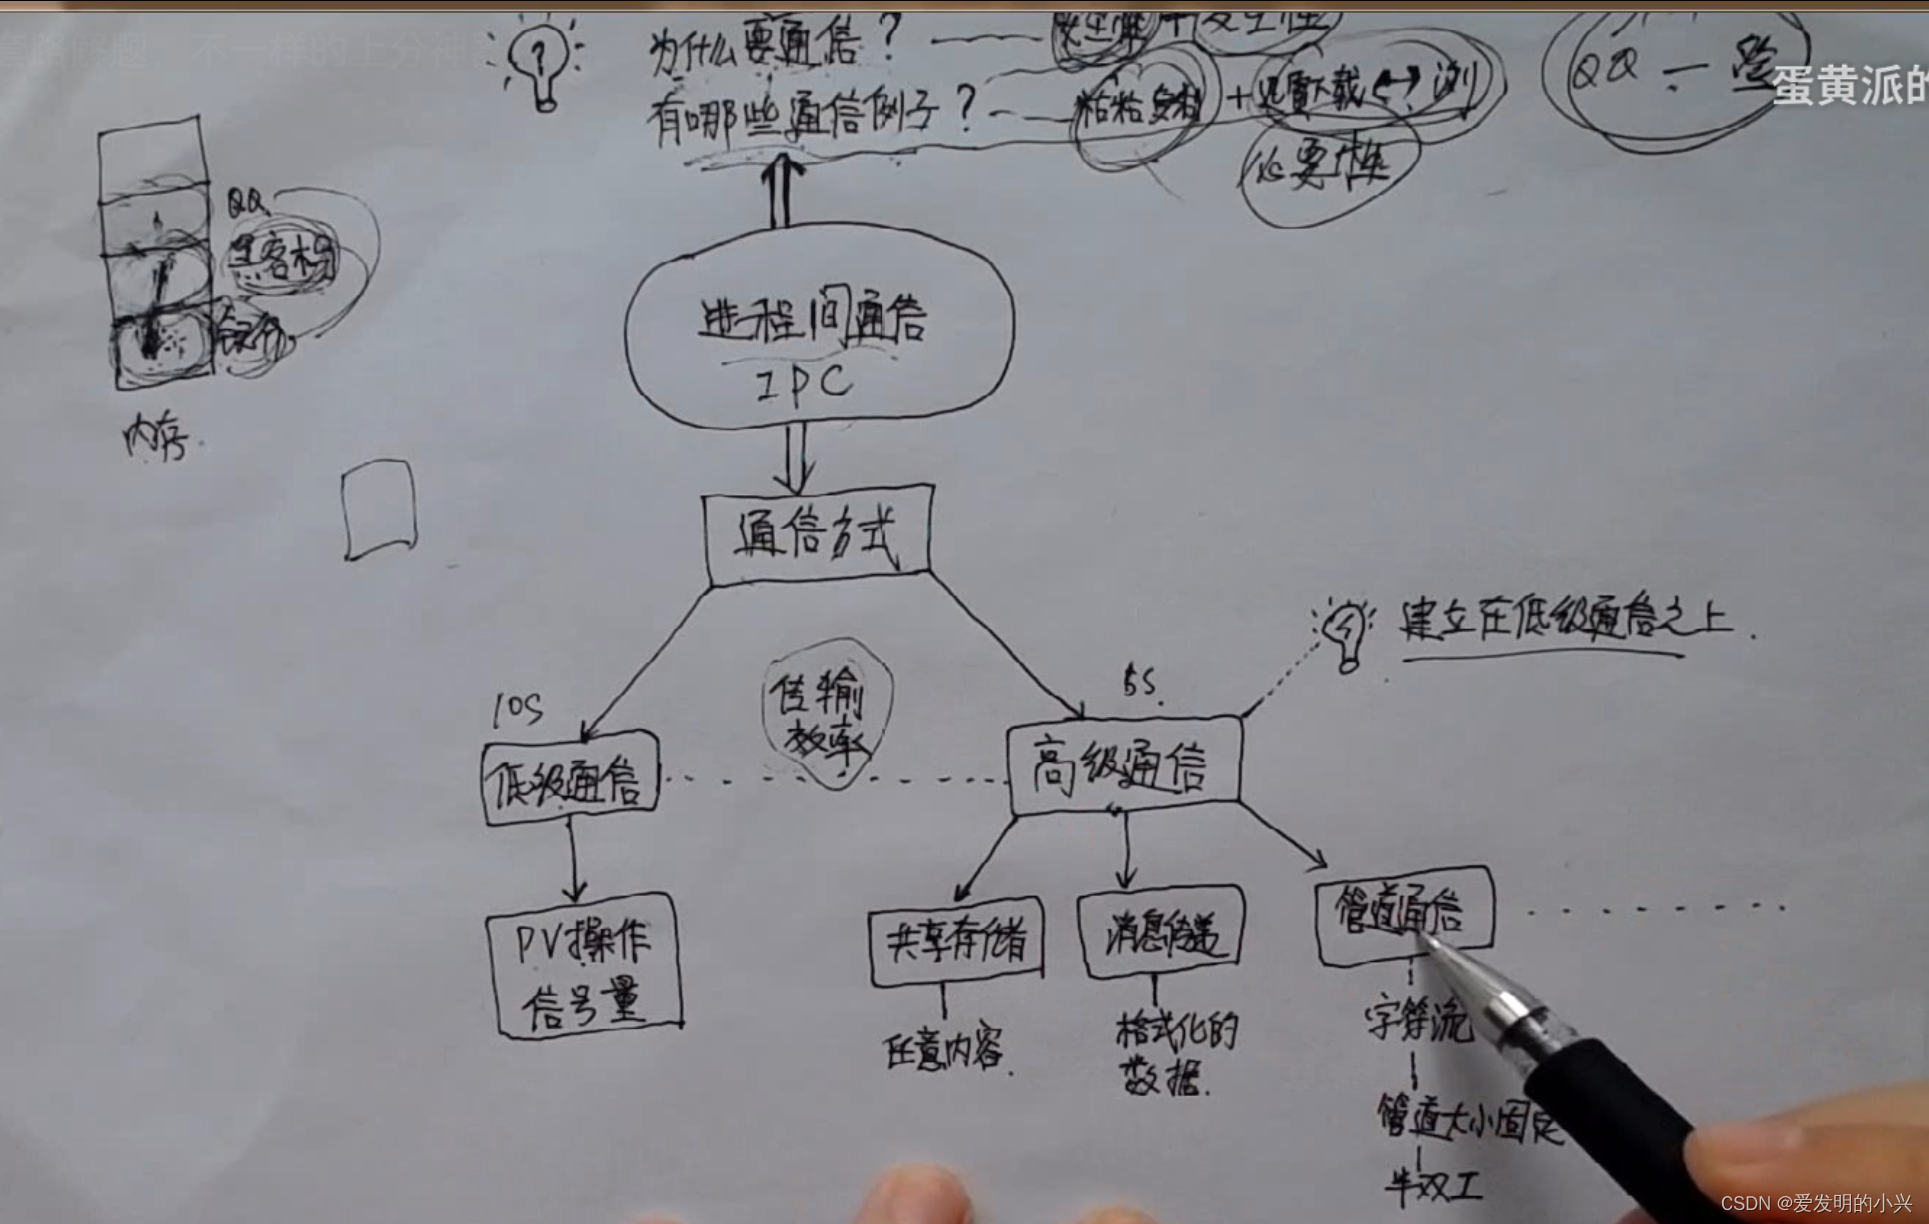 为什么要通信？
有哪些通信例子？
必要性
QQ 一 登
蛋黄派的
QQ
黑客木马
内存.
进程间通信
IPC
通信方式
建立在低级通信之上.
传输
效率
10S
低级通信
5S
高级通信
PV操作
信号量
共享存储
任意内容.
消息传递
格式化的
数据.
管道通信
字符流
管道大小固定
半双工
CSDN @爱发明的小兴